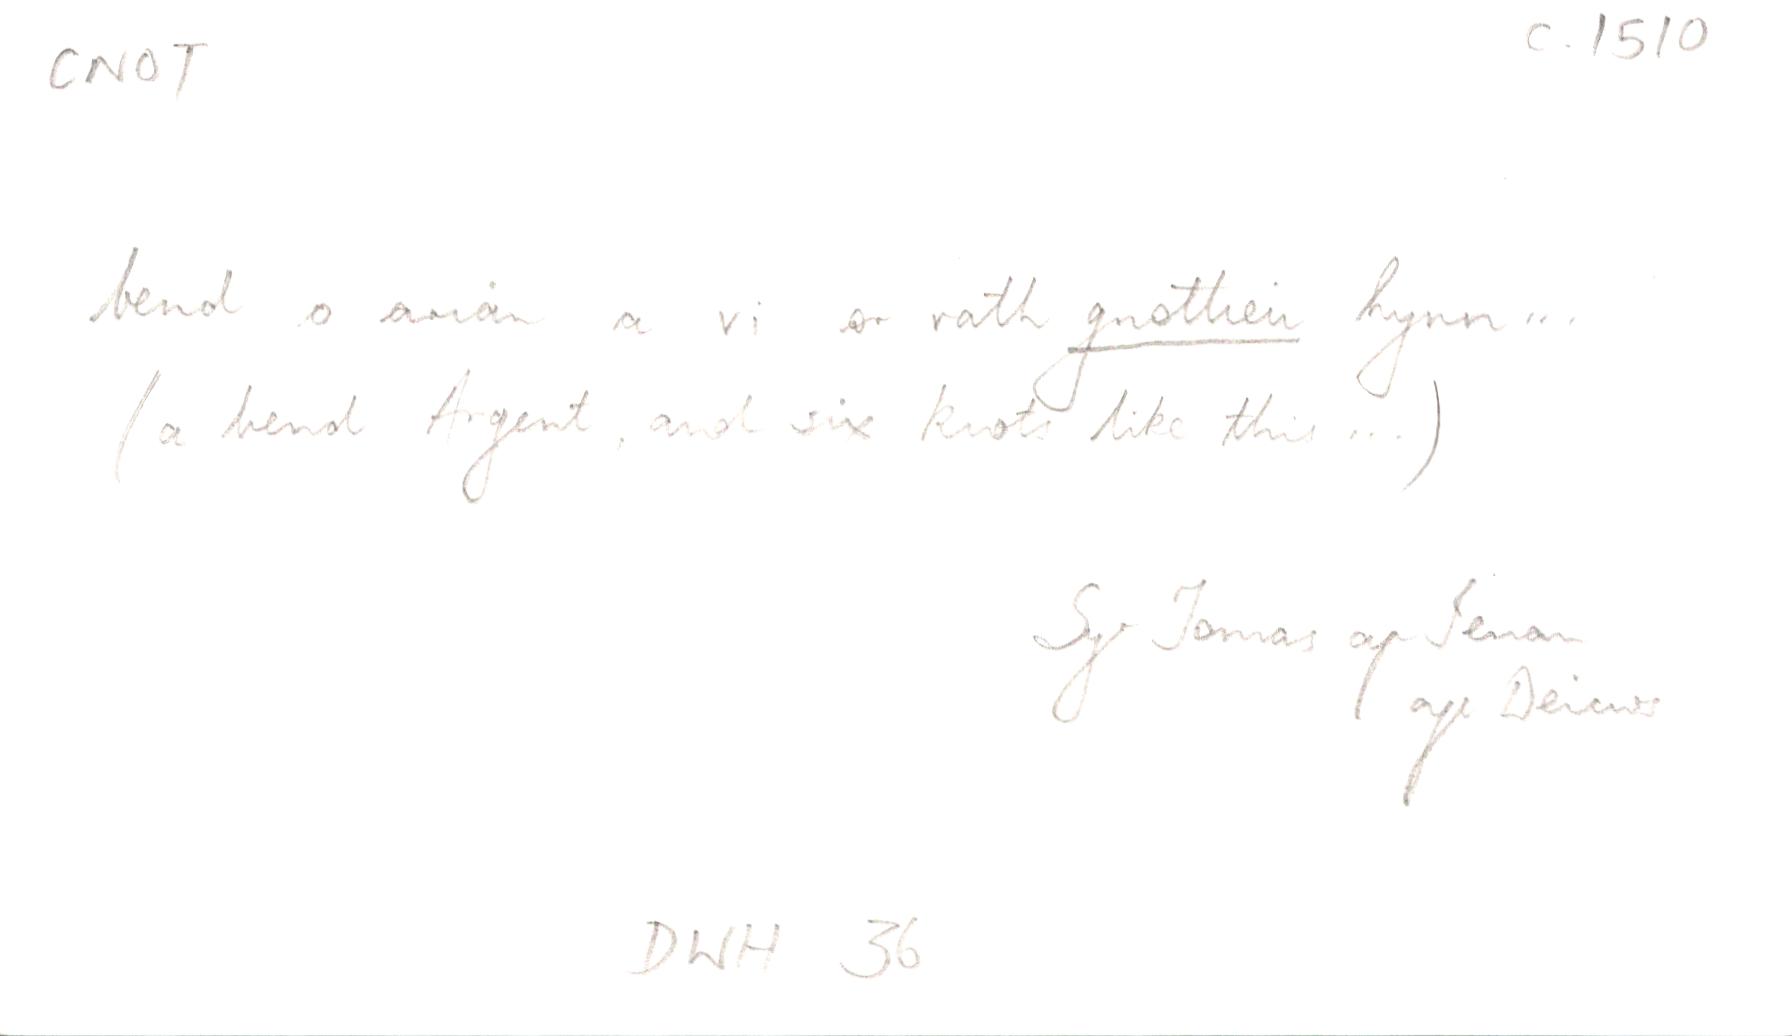 CNOT
c. 1510
bend o arian a vi or rath gnottieu hynn ...
(a bend Argent, and six knots like this ....)
Syr Tomas ap Ieuan
ap Deicws
DWH 36